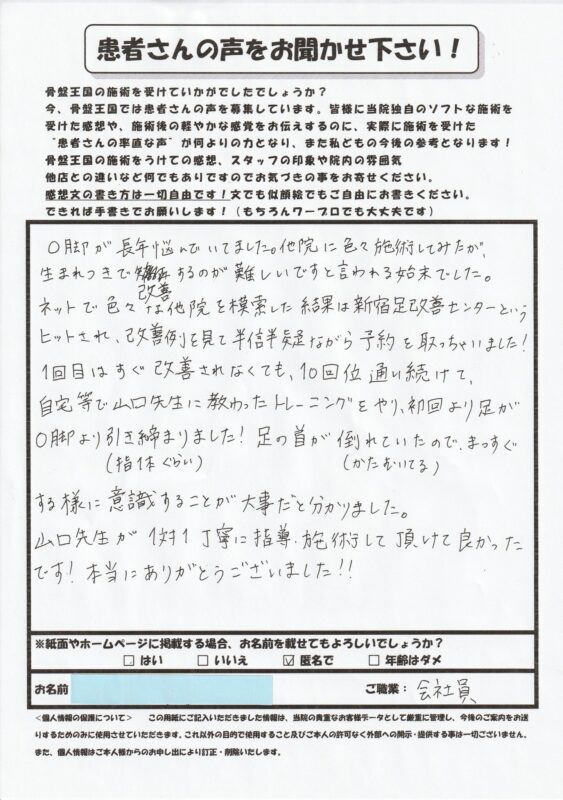 患者さんの声をお聞かせ下さい！
骨盤王国の施術を受けていかがでしたでしょうか？
今、骨盤王国では患者さんの声を募集しています。皆様に当院独自のソフトな施術を
受けた感想や、施術後の軽やかな感覚をお伝えするのに、実際に施術を受けた
“患者さんの率直な声”が何よりの力となり、また私どもの今後の参考となります！
骨盤王国の施術をうけての感想、スタッフの印象や院内の雰囲気
他店との違いなど何でもありますのでお気づきの事をお寄せください。
感想文の書き方は一切自由です！文でも似顔絵でもご自由にお書きください。
できれば手書きでお願いします！（もちろんワープロでも大丈夫です）
O脚が長年悩んでいてました。他院に色々施術してみたが、
生まれつきで するのが難しいですと言われる始末でした。
改善
ネットで色々な他院を模索した結果は新宿足改善センターという
ヒットされ、改善例を見て半信半疑ながら予約を取っちゃいました！
1回目はすぐ改善されなくても、10回位通い続けて、
自宅等で山口先生に教わったトレーニングをやり、初回より足が
O脚より引き締まりました！足の首が倒れていたので、まっすぐ
（指1本ぐらい） （かたむいてる）
する様に意識することが大事だと分かりました。
山口先生が1対1丁寧に指導・施術して頂けて良かった
です！本当にありがとうございました！！
※紙面やホームページに掲載する場合、お名前を載せてもよろしいでしょうか？
□ はい □ いいえ ☑ 匿名で □ 年齢はダメ
お名前 ご職業： 会社員
＜個人情報の保護について＞ この用紙にご記入いただきました情報は、当院の貴重なお客様データとして厳重に管理し、今後のご案内をお送
りするためのみに使用させていただきます。これ以外の目的で使用すること及びご本人の許可なく外部への開示・提供する事は一切ございません。
また、個人情報はご本人様からのお申し出により訂正・削除いたします。